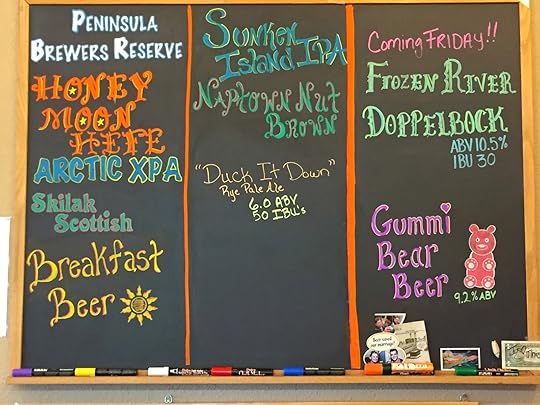 Peninsula
Brewers Reserve
Honey
Moon
Hefe
Arctic XPA
Skilak
Scottish
Breakfast
Beer
Sunken
Island IPA
Naptown Nut
Brown
"Duck It Down"
Rye Pale Ale
6.0 ABV
50 IBU's
Coming FRIDAY!!
Frozen River
Doppelbock
ABV 10.5%
IBU 30
Gummi
Bear
Beer
9.2% ABV
Beer saved
our marriage!